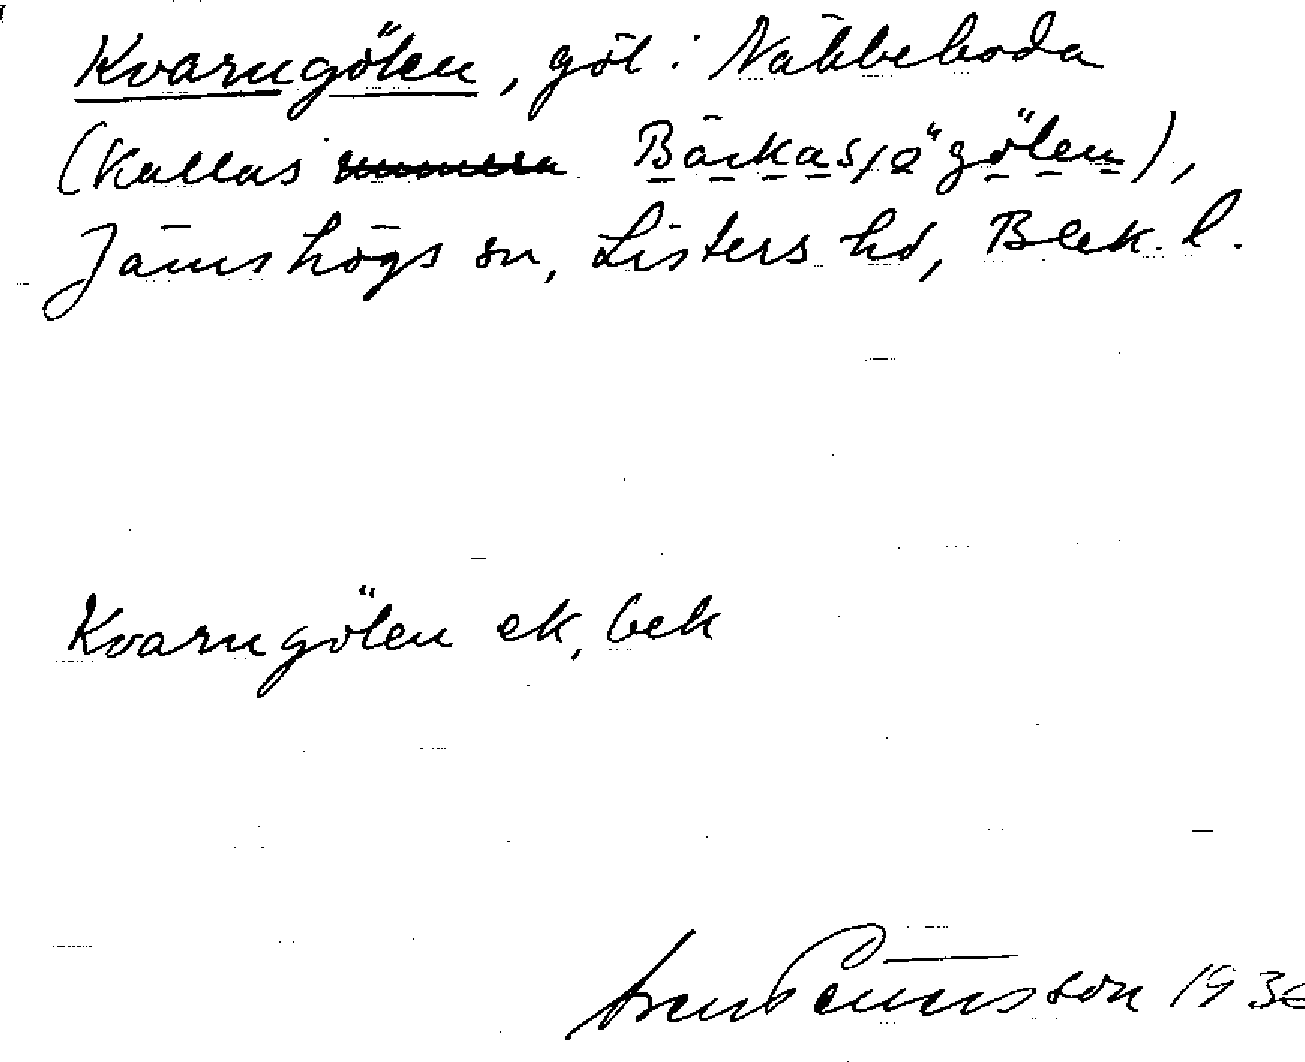 Kvarngölen, göl i Näbbeboda
(Kallas Bärkasjögölen),
Jämshögs sn, Listers hd, Blek. l.
Kvarngölen ek, bek
son 193